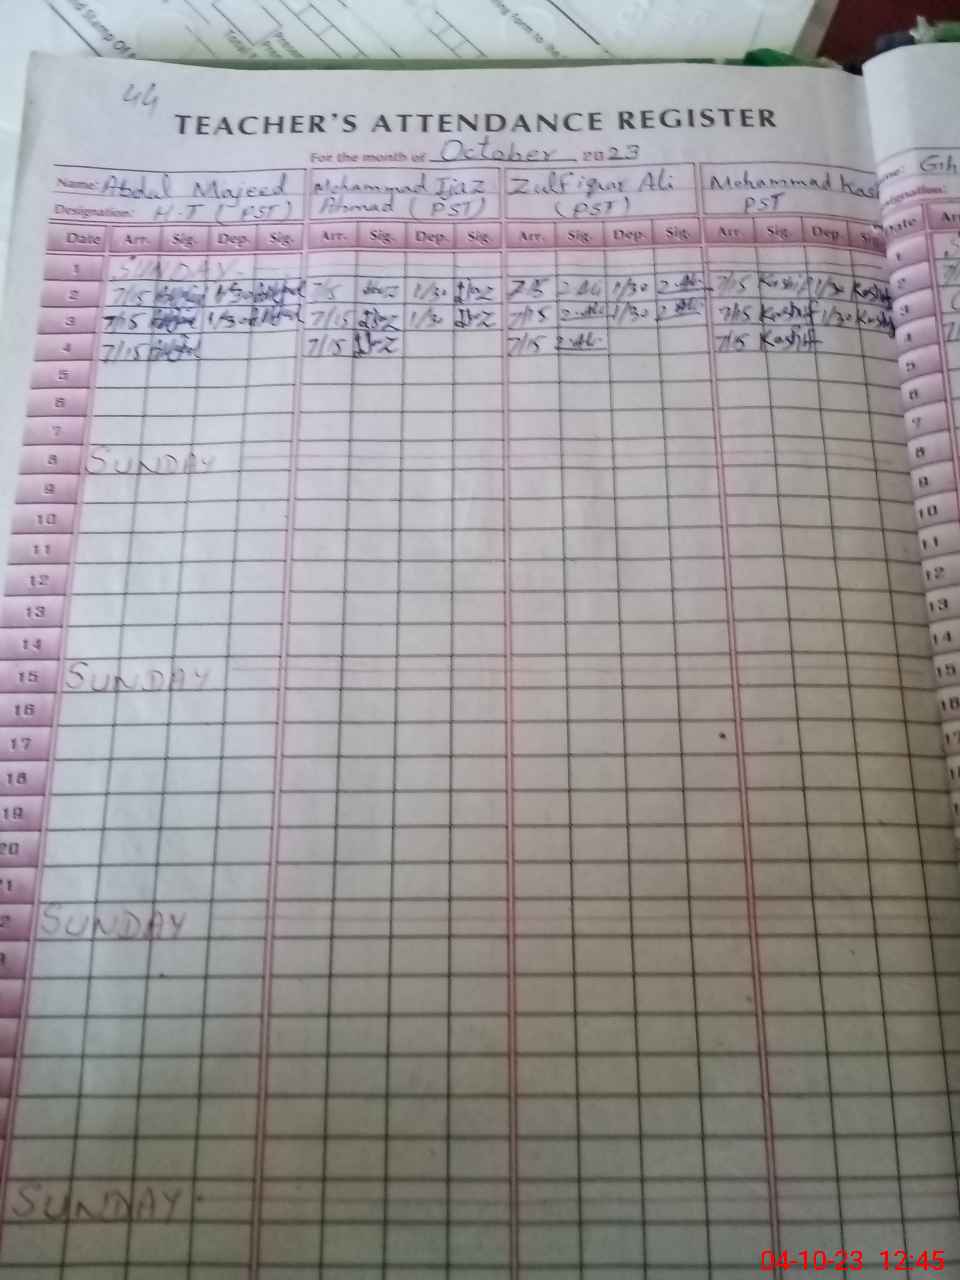 nd Stamp Of
Total
Present
ng form to the
44
TEACHER'S ATTENDANCE REGISTER
For the month of October 2023
Name: Abdul Majeed Mohammad Ijaz Zulfiqar Ali Mohammad Kash
Designation: H.T (PST) Ahmad (PST) (PST) PST
Date Arr. Sig. Dep. Sig. Arr. Sig. Dep. Sig. Arr. Sig. Dep. Sig. Arr. Sig. Dep Sig
1 SUNDAY
2 7/15 1/30 7/5 Ijaz 1/30 Ijaz 7/15 Z.Ali 1/30 Z.Ali 7/15 Kashif 1/30 Kashif
3 7/15 1/30 7/15 Ijaz 1/30 Ijaz 7/15 Z.Ali 1/30 Z.Ali 7/15 Kashif 1/30 Kashif
4 7/15 7/15 Ijaz 7/15 Z.Ali 7/15 Kashif
5
6
7
8 SUNDAY
9
10
11
12
13
14
15 SUNDAY
16
17
18
19
20
1
2 SUNDAY
SUNDAY
me: Gh
signation:
Date Arr
1
2
3
4
5
6
7
8
9
10
11
12
13
14
15
16
17
04-10-23 12:45